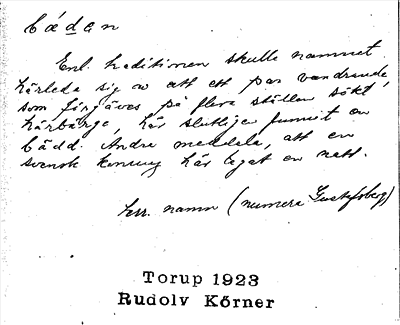 Bádan
Enl. traditionen skulle namnet
härleda sig av att ett par vandrande,
som förgäves på flera ställen sökt
härbärge, här slutligen funnit en
bädd. Andra meddela, att en
svensk konung här legat en natt.
Terr. namn (numera Gustafsberg)
Torup 1923
Rudolv Körner